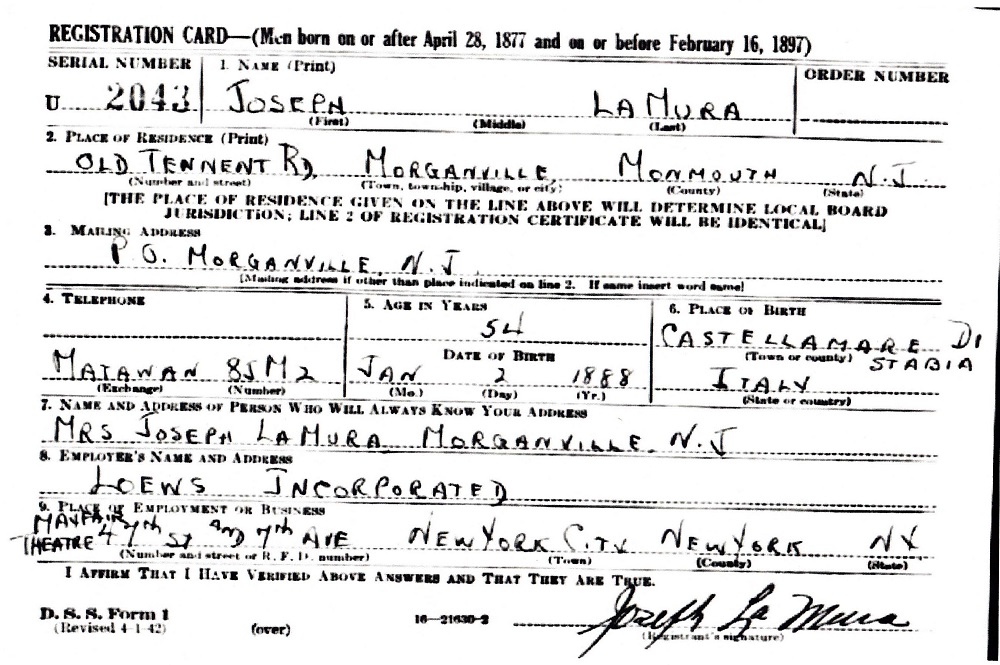 REGISTRATION CARD—(Men born on or after April 28, 1877 and on or before February 16, 1897)
SERIAL NUMBER 1. NAME (Print) ORDER NUMBER
U 2043 JOSEPH LAMURA
(First) (Middle) (Last)
2. PLACE OF RESIDENCE (Print)
OLD TENNENT RD, MORGANVILLE, MONMOUTH N.J.
(Number and street) (Town, township, village, or city) (County) (State)
[THE PLACE OF RESIDENCE GIVEN ON THE LINE ABOVE WILL DETERMINE LOCAL BOARD
JURISDICTION; LINE 2 OF REGISTRATION CERTIFICATE WILL BE IDENTICAL]
3. MAILING ADDRESS
P.O. MORGANVILLE, N.J.
[Mailing address if other than place indicated on line 2. If same insert word same]
4. TELEPHONE 5. AGE IN YEARS 6. PLACE OF BIRTH
54 CASTELLAMARE DI
DATE OF BIRTH (Town or county) STABIA
MATAWAN 85M2 JAN 2 1888 ITALY
(Exchange) (Number) (Mo.) (Day) (Yr.) (State or country)
7. NAME AND ADDRESS OF PERSON WHO WILL ALWAYS KNOW YOUR ADDRESS
MRS JOSEPH LAMURA MORGANVILLE, N.J
8. EMPLOYER'S NAME AND ADDRESS
LOEWS INCORPORATED
9. PLACE OF EMPLOYMENT OR BUSINESS
MAYFAIR
THEATRE 47TH ST AND 7TH AVE NEW YORK CITY NEW YORK NY
(Number and street or R. F. D. number) (Town) (County) (State)
I AFFIRM THAT I HAVE VERIFIED ABOVE ANSWERS AND THAT THEY ARE TRUE.
Joseph La Mura
D. S. S. Form 1 16—21630-2 (Registrant's signature)
(Revised 4-1-42) (over)